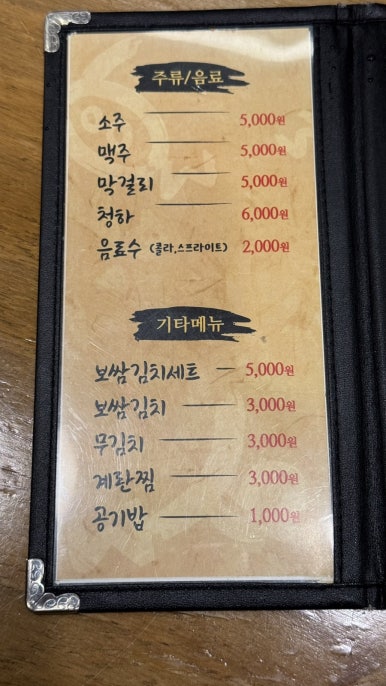 주류/음료
소주 5,000원
맥주 5,000원
막걸리 5,000원
청하 6,000원
음료수 (콜라,스프라이트) 2,000원
기타메뉴
보쌈김치세트 5,000원
보쌈김치 3,000원
무김치 3,000원
계란찜 3,000원
공기밥 1,000원